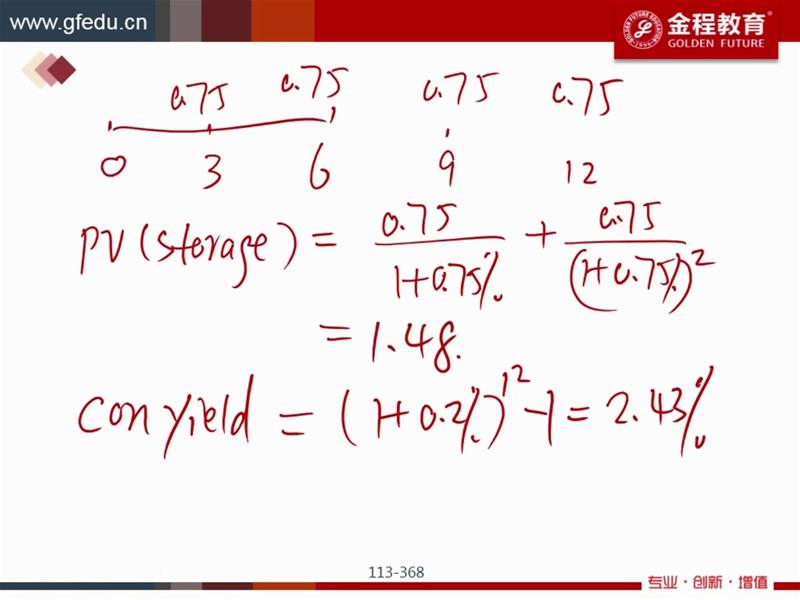 www.gfedu.cn
金程教育
GOLDEN FUTURE
0.75 0.75 0.75 0.75
0 3 6 9 12
PV(storage) = 0.75/(1+0.75%) + 0.75/(1+0.75%)²
= 1.48.
Con yield = (1+0.2%)¹² -1 = 2.43%
113-368
专业·创新·增值